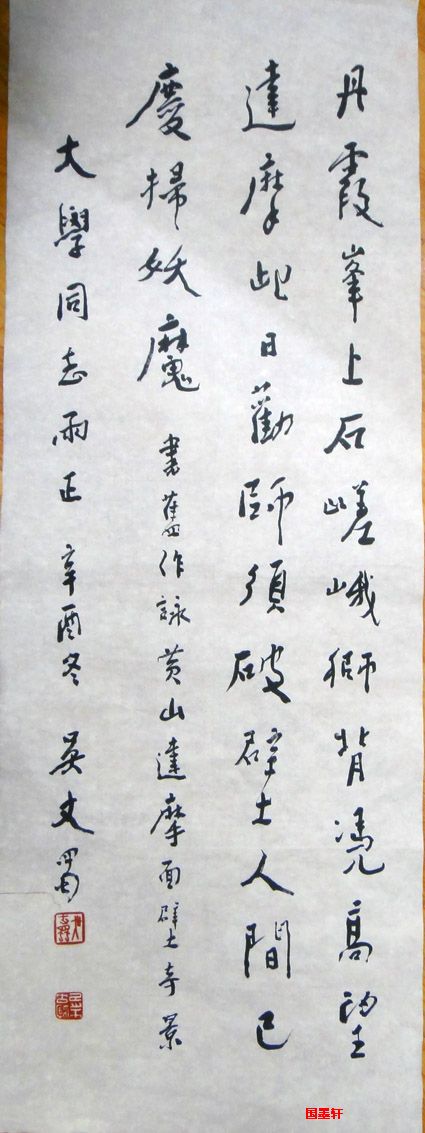 丹霞峯上石嵯峨獅背凴高望
達摩此日勸師須破壁人間已
慶掃妖魔 書舊作詠黃山達摩面壁奇景
大學同志雨正 辛酉冬 吳丈蜀
国墨轩